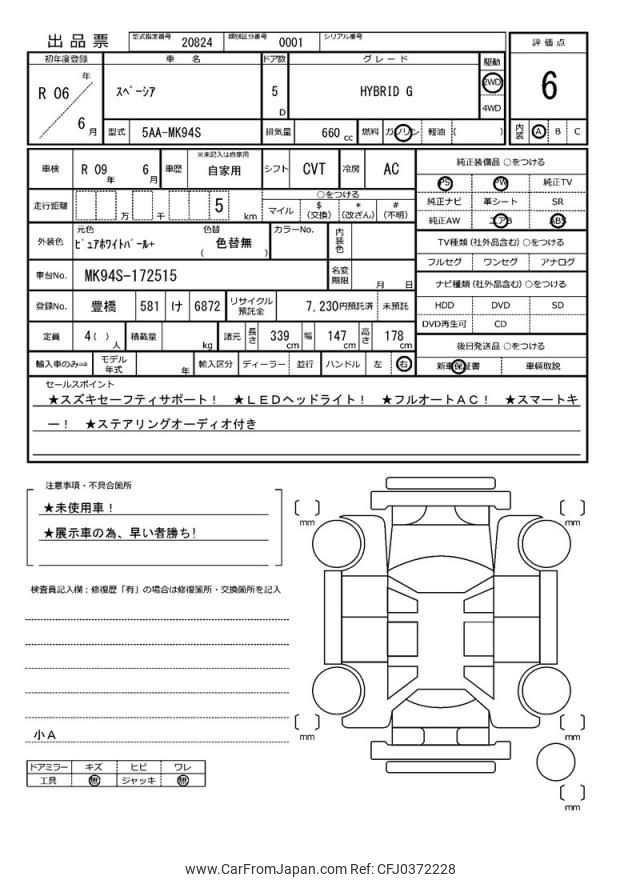 出品票
型式指定番号 20824 類別区分番号 0001 シリアル番号
初年度登録 車名 ドア数 グレード 駆動 評価点
R 06 年 6 月
スペーシア 5 D HYBRID G 2WD 4WD
6
型式 5AA-MK94S 排気量 660 cc 燃料 ガソリン 軽油 ( )
内装 A B C
車検 R 09 年 6 月 車歴 ※未記入は自家用 自家用 シフト CVT 冷房 AC
走行距離 万 千 5 km
○をつける
マイル $ (交換) * (改ざん) # (不明)
外装色 元色 ピュアホワイトパール+ 色替 ( 色替無 ) カラーNo. 内装色
車台No. MK94S-172515 名変期限 月 日
登録No. 豊橋 581 け 6872 リサイクル預託金 7,230円預託済 未預託
定員 4( ) 人 積載量 kg 諸元 長さ 339 cm 幅 147 cm 高さ 178 cm
輸入車のみ⇒ モデル年式 年 輸入区分 ディーラー 並行 ハンドル 左 右
純正装備品 ○をつける
PS PW 純正TV
純正ナビ 革シート SR
純正AW エアB ABS
TV種類 (社外品含む) ○をつける
フルセグ ワンセグ アナログ
ナビ種類 (社外品含む) ○をつける
HDD DVD SD
DVD再生可 CD
後日発送品 ○をつける
新車保証書 車輌取説
セールスポイント
★スズキセーフティサポート! ★LEDヘッドライト! ★フルオートAC! ★スマートキ
ー! ★ステアリングオーディオ付き
注意事項・不具合箇所
★未使用車!
★展示車の為、早い者勝ち!
検査員記入欄:修復歴「有」の場合は修復箇所・交換箇所を記入
小A
ドアミラー キズ ヒビ ワレ
工具 無 ジャッキ 無
mm
mm
mm
mm
mm
www.CarFromJapan.com Ref: CFJ0372228